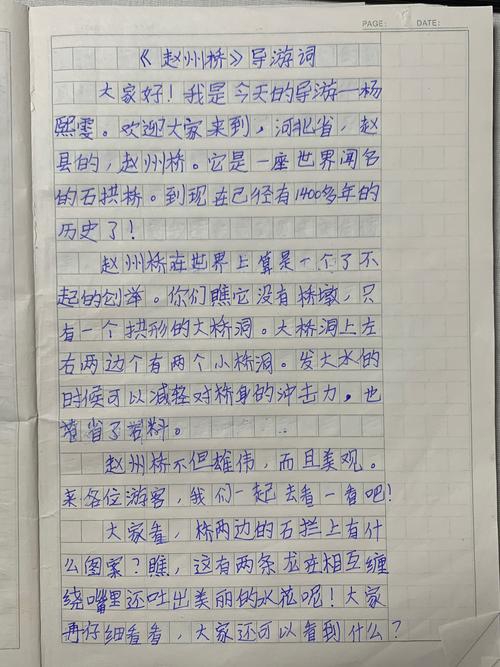 PAGE: DATE:
《赵州桥》导游词
大家好！我是今天的导游一杨
熙雯。欢迎大家来到，河北省，赵
县的，赵州桥。它是一座世界闻名
的石拱桥。到现在已经有1400多年的
历史了！
赵州桥在世界上算是一个了不
起的创举。你们瞧它没有桥墩，只
有一个拱形的大桥洞。大桥洞上左
右两边个有两个小桥洞。发大水的
时候可以减轻对桥身的冲击力，也
节省了石料。
赵州桥不但雄伟，而且美观。
来各位游客，我们一起去看一看吧！
大家看，桥两边的石拦上有什
么图案？瞧，这有两条龙在相互缠
绕嘴里还吐出美丽的水花呢！大家
再仔细看看，大家还可以看到什么？